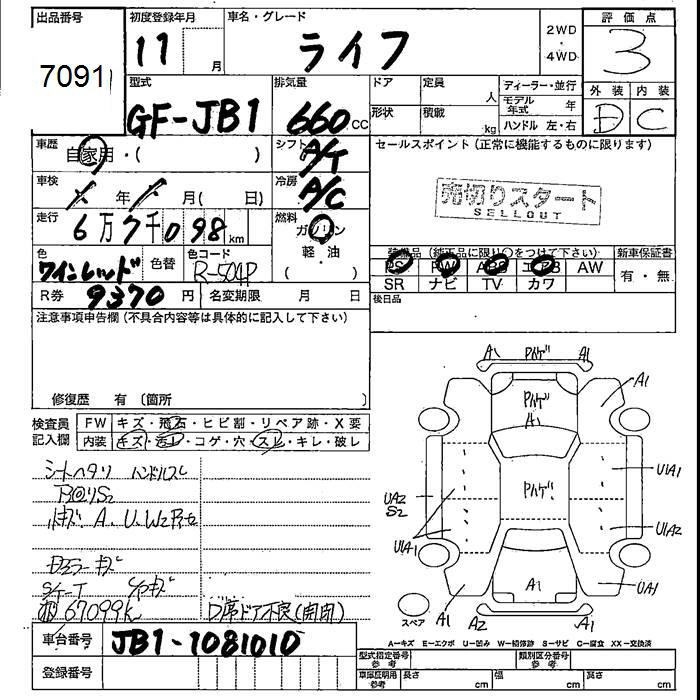 出品番号 初度登録年月 車名・グレード 2WD ・ 4WD 評価点
7091 11 月 ライフ 3
型式 排気量 ドア 定員 人 ディーラー・並行 外装 内装
GF-JB1 660 cc 形状 積載 kg モデル年式 年 D C
ハンドル 左・右
車歴 自家用・( ) シフト A/T セールスポイント (正常に機能するものに限ります)
車検 年 月( 日) 冷房 A/C 売切りスタート
SELLOUT
走行 6万7千098km 燃料 ガソリン
軽・油
( )
色 ワインレッド 色替 色コード R-504P 装備品(純正品に限り○をつけて下さい) 新車保証書
PS PW ABS エアB AW 有・無
R券 9370円 名変期限 月 日 SR ナビ TV カワ
後日品
注意事項申告欄(不具合内容等は具体的に記入して下さい)
修復歴 有 〔箇所 〕
検査員記入欄 FW キズ・飛石・ヒビ割・リペア跡・X要
内装 キズ・汚レ・コゲ・穴・スレ・キレ・破レ
シートヘタリ ハンドルスレ
A、U、W2
67099K D席ドア不良(開閉)
A1 Pハゲ A1
A1 A1
Pハゲ
UA2 S2 Pハゲ U1A1
U1A1 U1A2
A1 UA1
スペア A1 A2 A1
A=キズ E=エクボ U=凹み W=補修跡 S=サビ C=腐食 XX=交換済
車台番号 JB1-1081010
登録番号
型式指定番号 参考 類別区分番号 参考
車庫証明用 参考 長さ cm 幅 cm 高さ cm